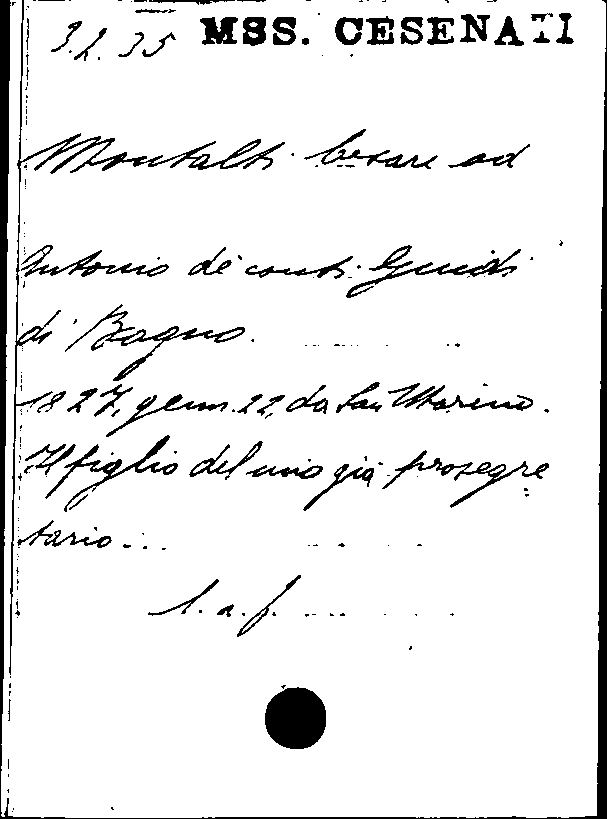 3.2.35 MSS. CESENATI
Montalti Cesare ad
Antonio de' conti Guidi
di Bagno.
1827, genn. 22, da San Marino.
Il figlio del mio già prosegre
tario...
l. a. f.